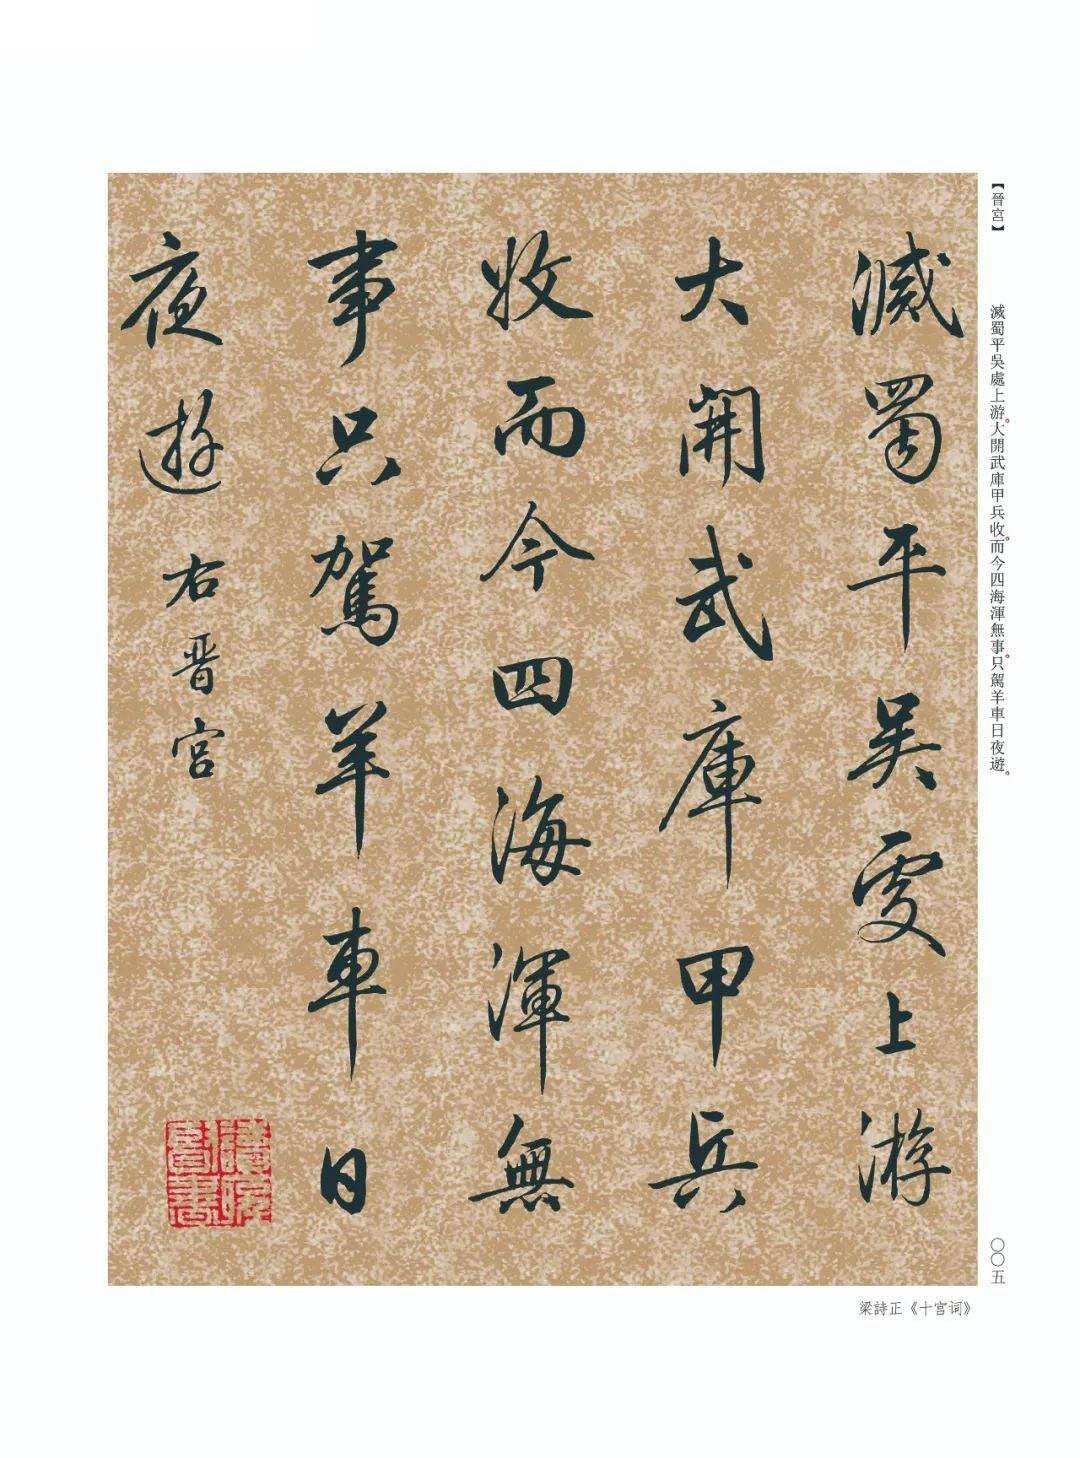 【晉宮】
滅蜀平吳處上游。大開武庫甲兵收。而今四海渾無事。只駕羊車日夜遊。
滅蜀平吳處上游
大開武庫甲兵
收而今四海渾無
事只駕羊車日
夜遊 右晋宮
〇〇五
梁詩正《十宮词》